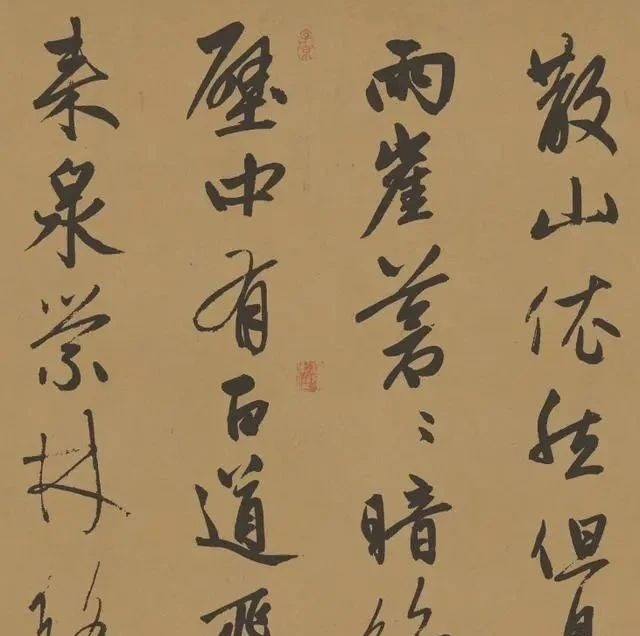 散山依然但
兩崖蒼〻暗
壁中有百道飛
来泉縈林